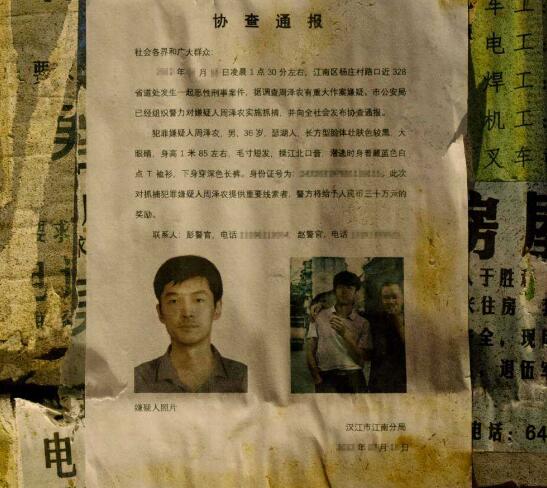 协查通报
社会各界和广大群众：
年 月 日凌晨1点30分左右，江南区杨庄村路口近328
省道处发生一起恶性刑事案件，据调查周泽农有重大作案嫌疑。市公安局
已经组织警力对嫌疑人周泽农实施抓捕，并向全社会发布协查通报。
犯罪嫌疑人周泽农，男，36岁，瑟湖人，长方型脸体壮肤色较黑，大
眼睛，身高1米85左右，毛寸短发，操江北口音，潜逃时身着藏蓝色白
点T袖衫，下身穿深色长裤。身份证号为： 此次
对抓捕犯罪嫌疑人周泽农提供重要线索者，警方将给予人民币三十万元的
奖励。
联系人：彭警官，电话 赵警官，电话
嫌疑人照片
汉江市江南分局
年 月 日
要
求
电
车
电
焊
机
叉
工
工
工
工
车
房
于胜
住房
全，现
电话：64